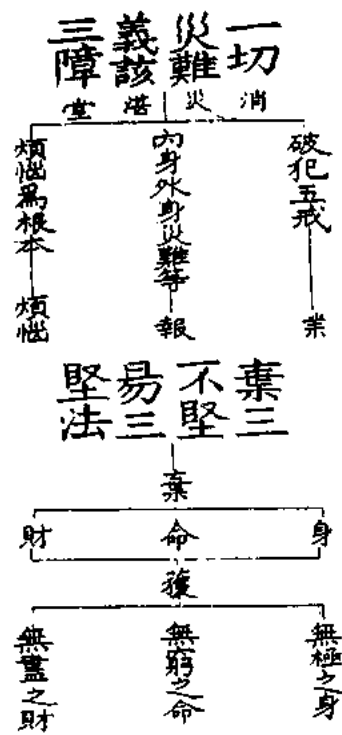 一切
災難
義該
三障
消災湛堂
破犯五戒
業
內身外身災難等
報
煩惱為根本
煩惱
棄三
不堅
易三
堅法
棄
身
命
財
獲
無極之身
無窮之命
無盡之財